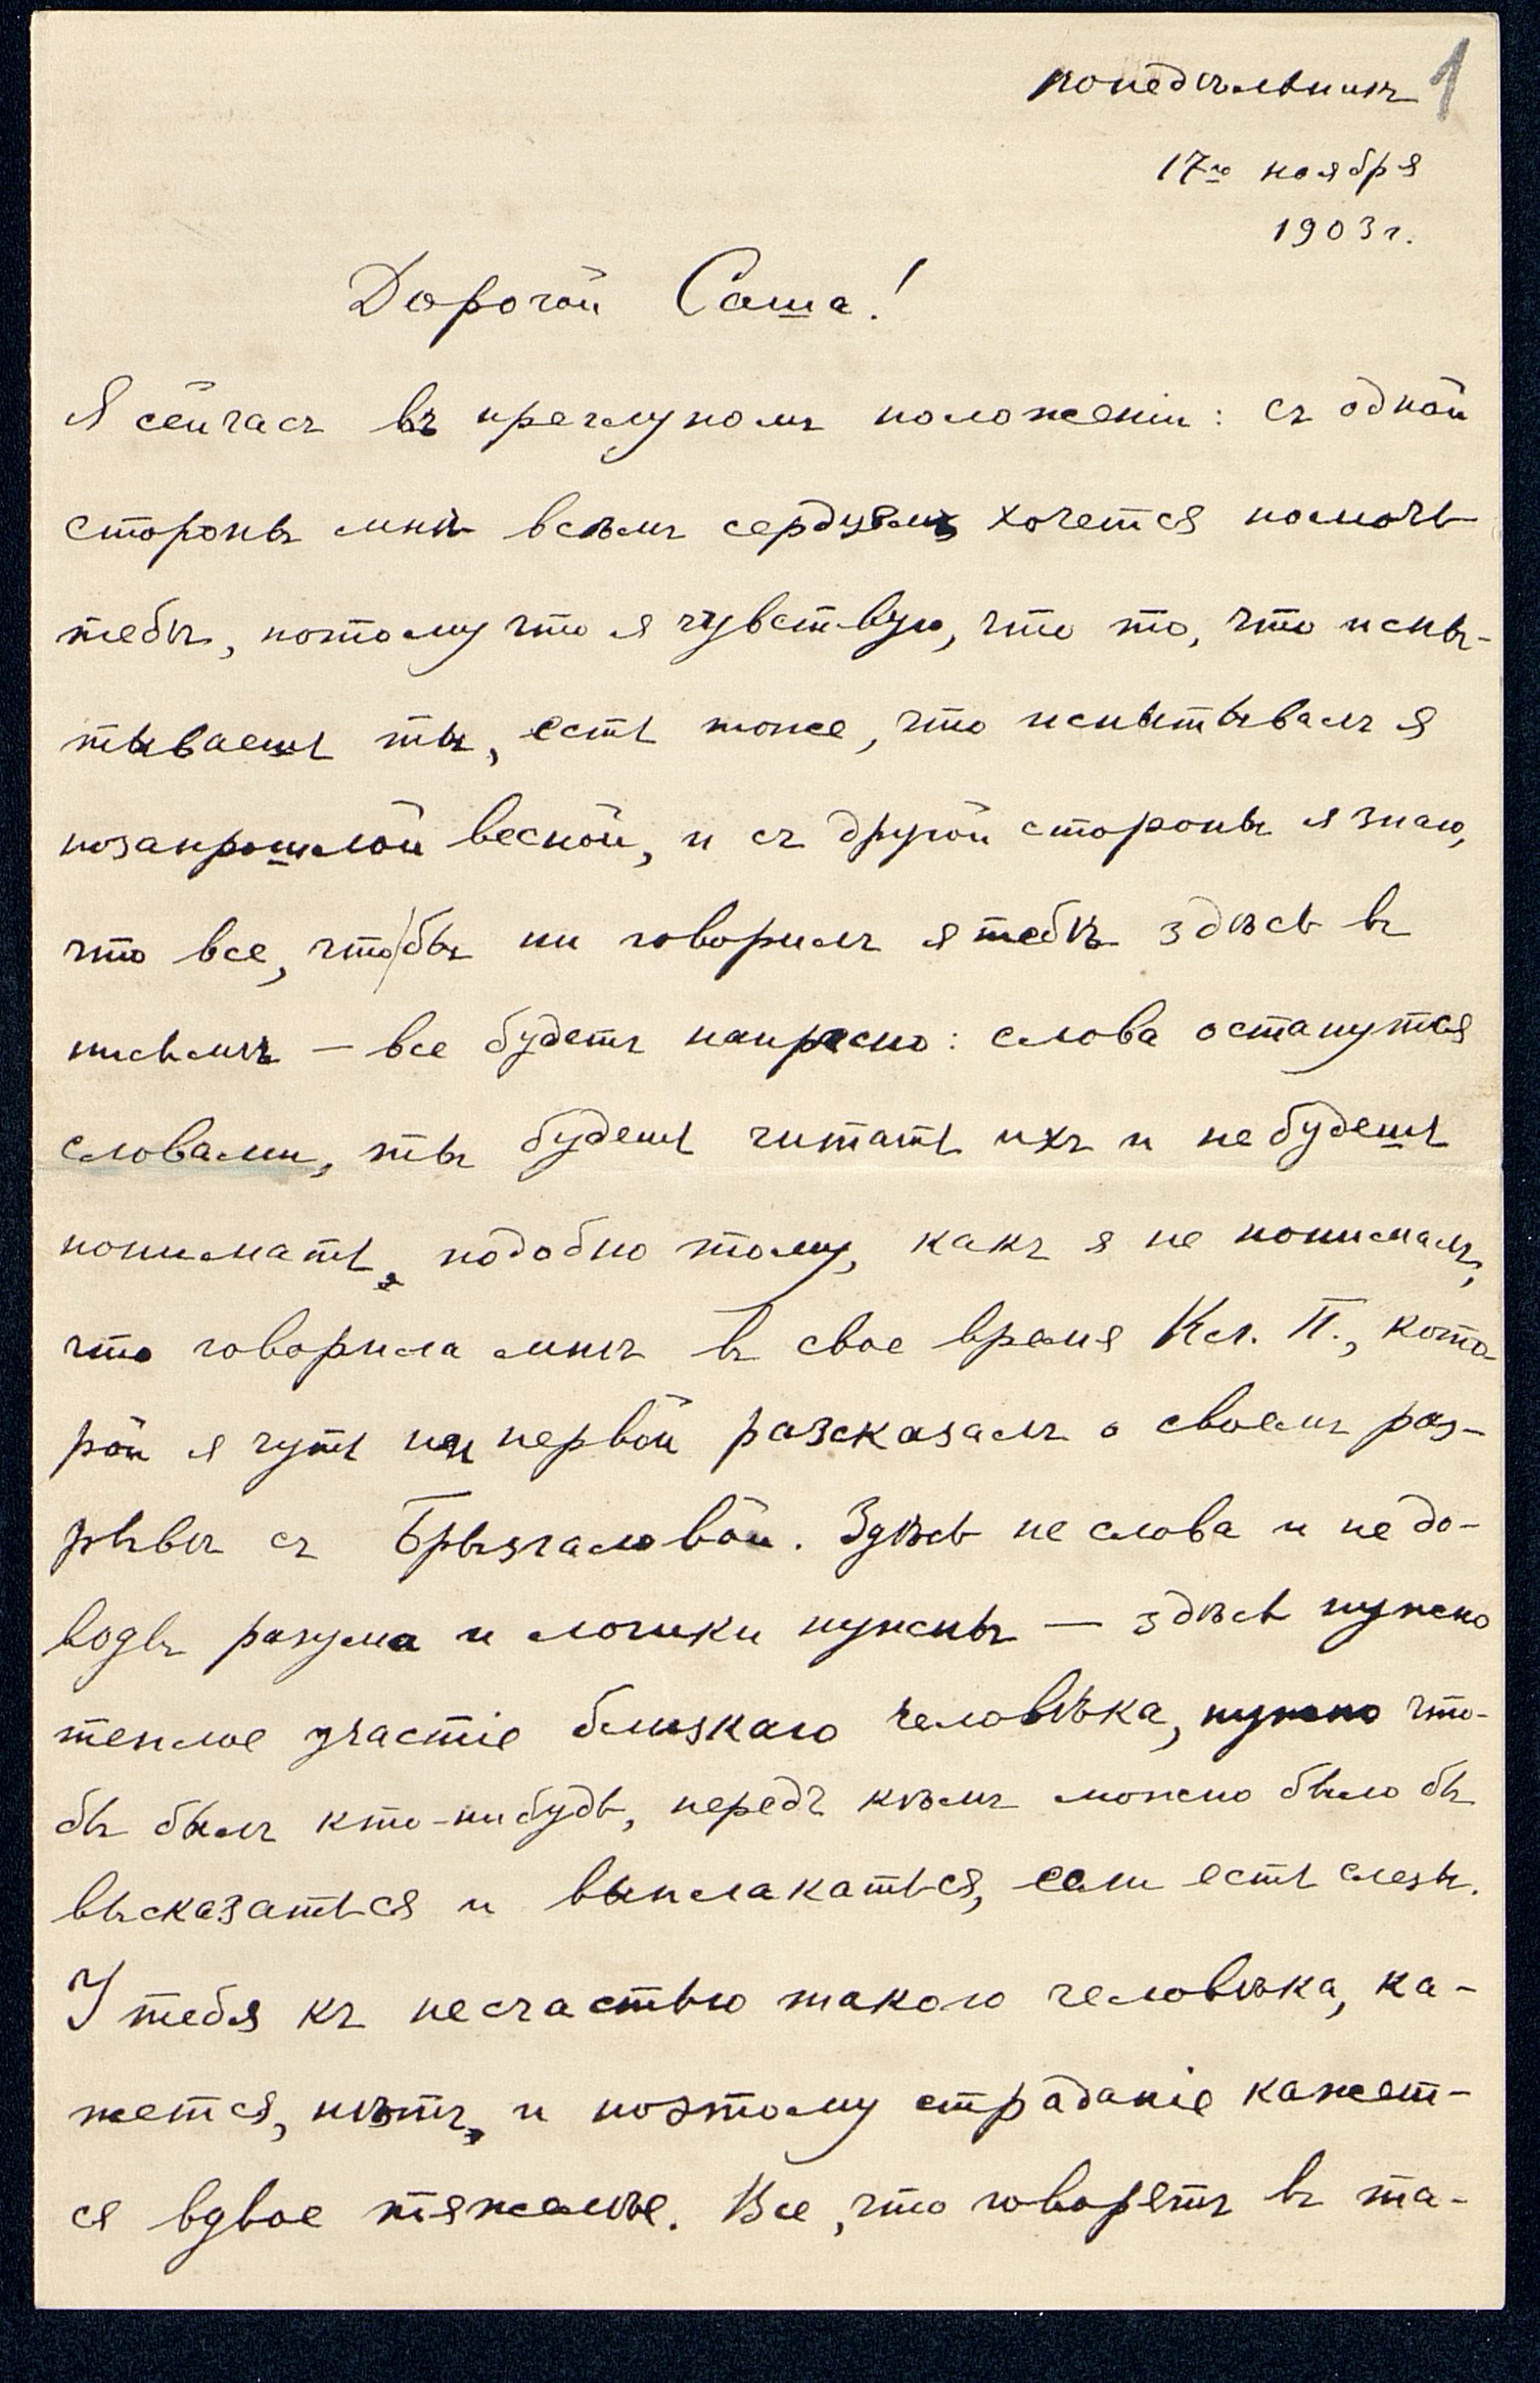 понедѣльникъ 1
17го ноября
1903 г.
Дорогой Саша!
Я сейчасъ въ преглупомъ положеніи: съ одной
стороны мнѣ всѣмъ сердцемъ хочется помочь
тебѣ, потому что я чувствую, что то, что испы-
тываешь ты, есть тоже, что испытывалъ я
позапрошлой весной, и съ другой стороны я знаю,
что все, что бы ни говорилъ я тебѣ здѣсь въ
письмѣ — все будетъ напрасно: слова останутся
словами, ты будешь читать ихъ и не будешь
понимать, подобно тому, какъ я не понималъ,
что говорила мнѣ въ свое время Кл. П., кото
рой я чуть не первой разсказалъ о своемъ раз-
рывѣ съ Брызгаловой. Здѣсь не слова и не до-
воды разума и логики нужны — здѣсь нужно
теплое участіе близкаго человѣка, нужно что-
бы былъ кто-нибудь, передъ кѣмъ можно было бы
высказаться и выплакаться, если есть слезы.
У тебя къ несчастью такого человѣка, ка-
жется, нѣтъ, и поэтому страданіе кажет-
ся вдвое тяжелѣе. Все, что говорятъ въ та-